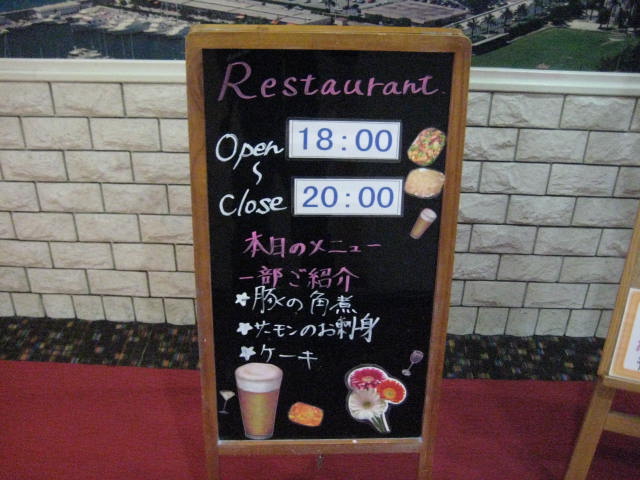 Restaurant.
Open 18:00
〜
Close 20:00
本日のメニュー
一部ご紹介
★豚の角煮
★サーモンのお刺身
★ケーキ